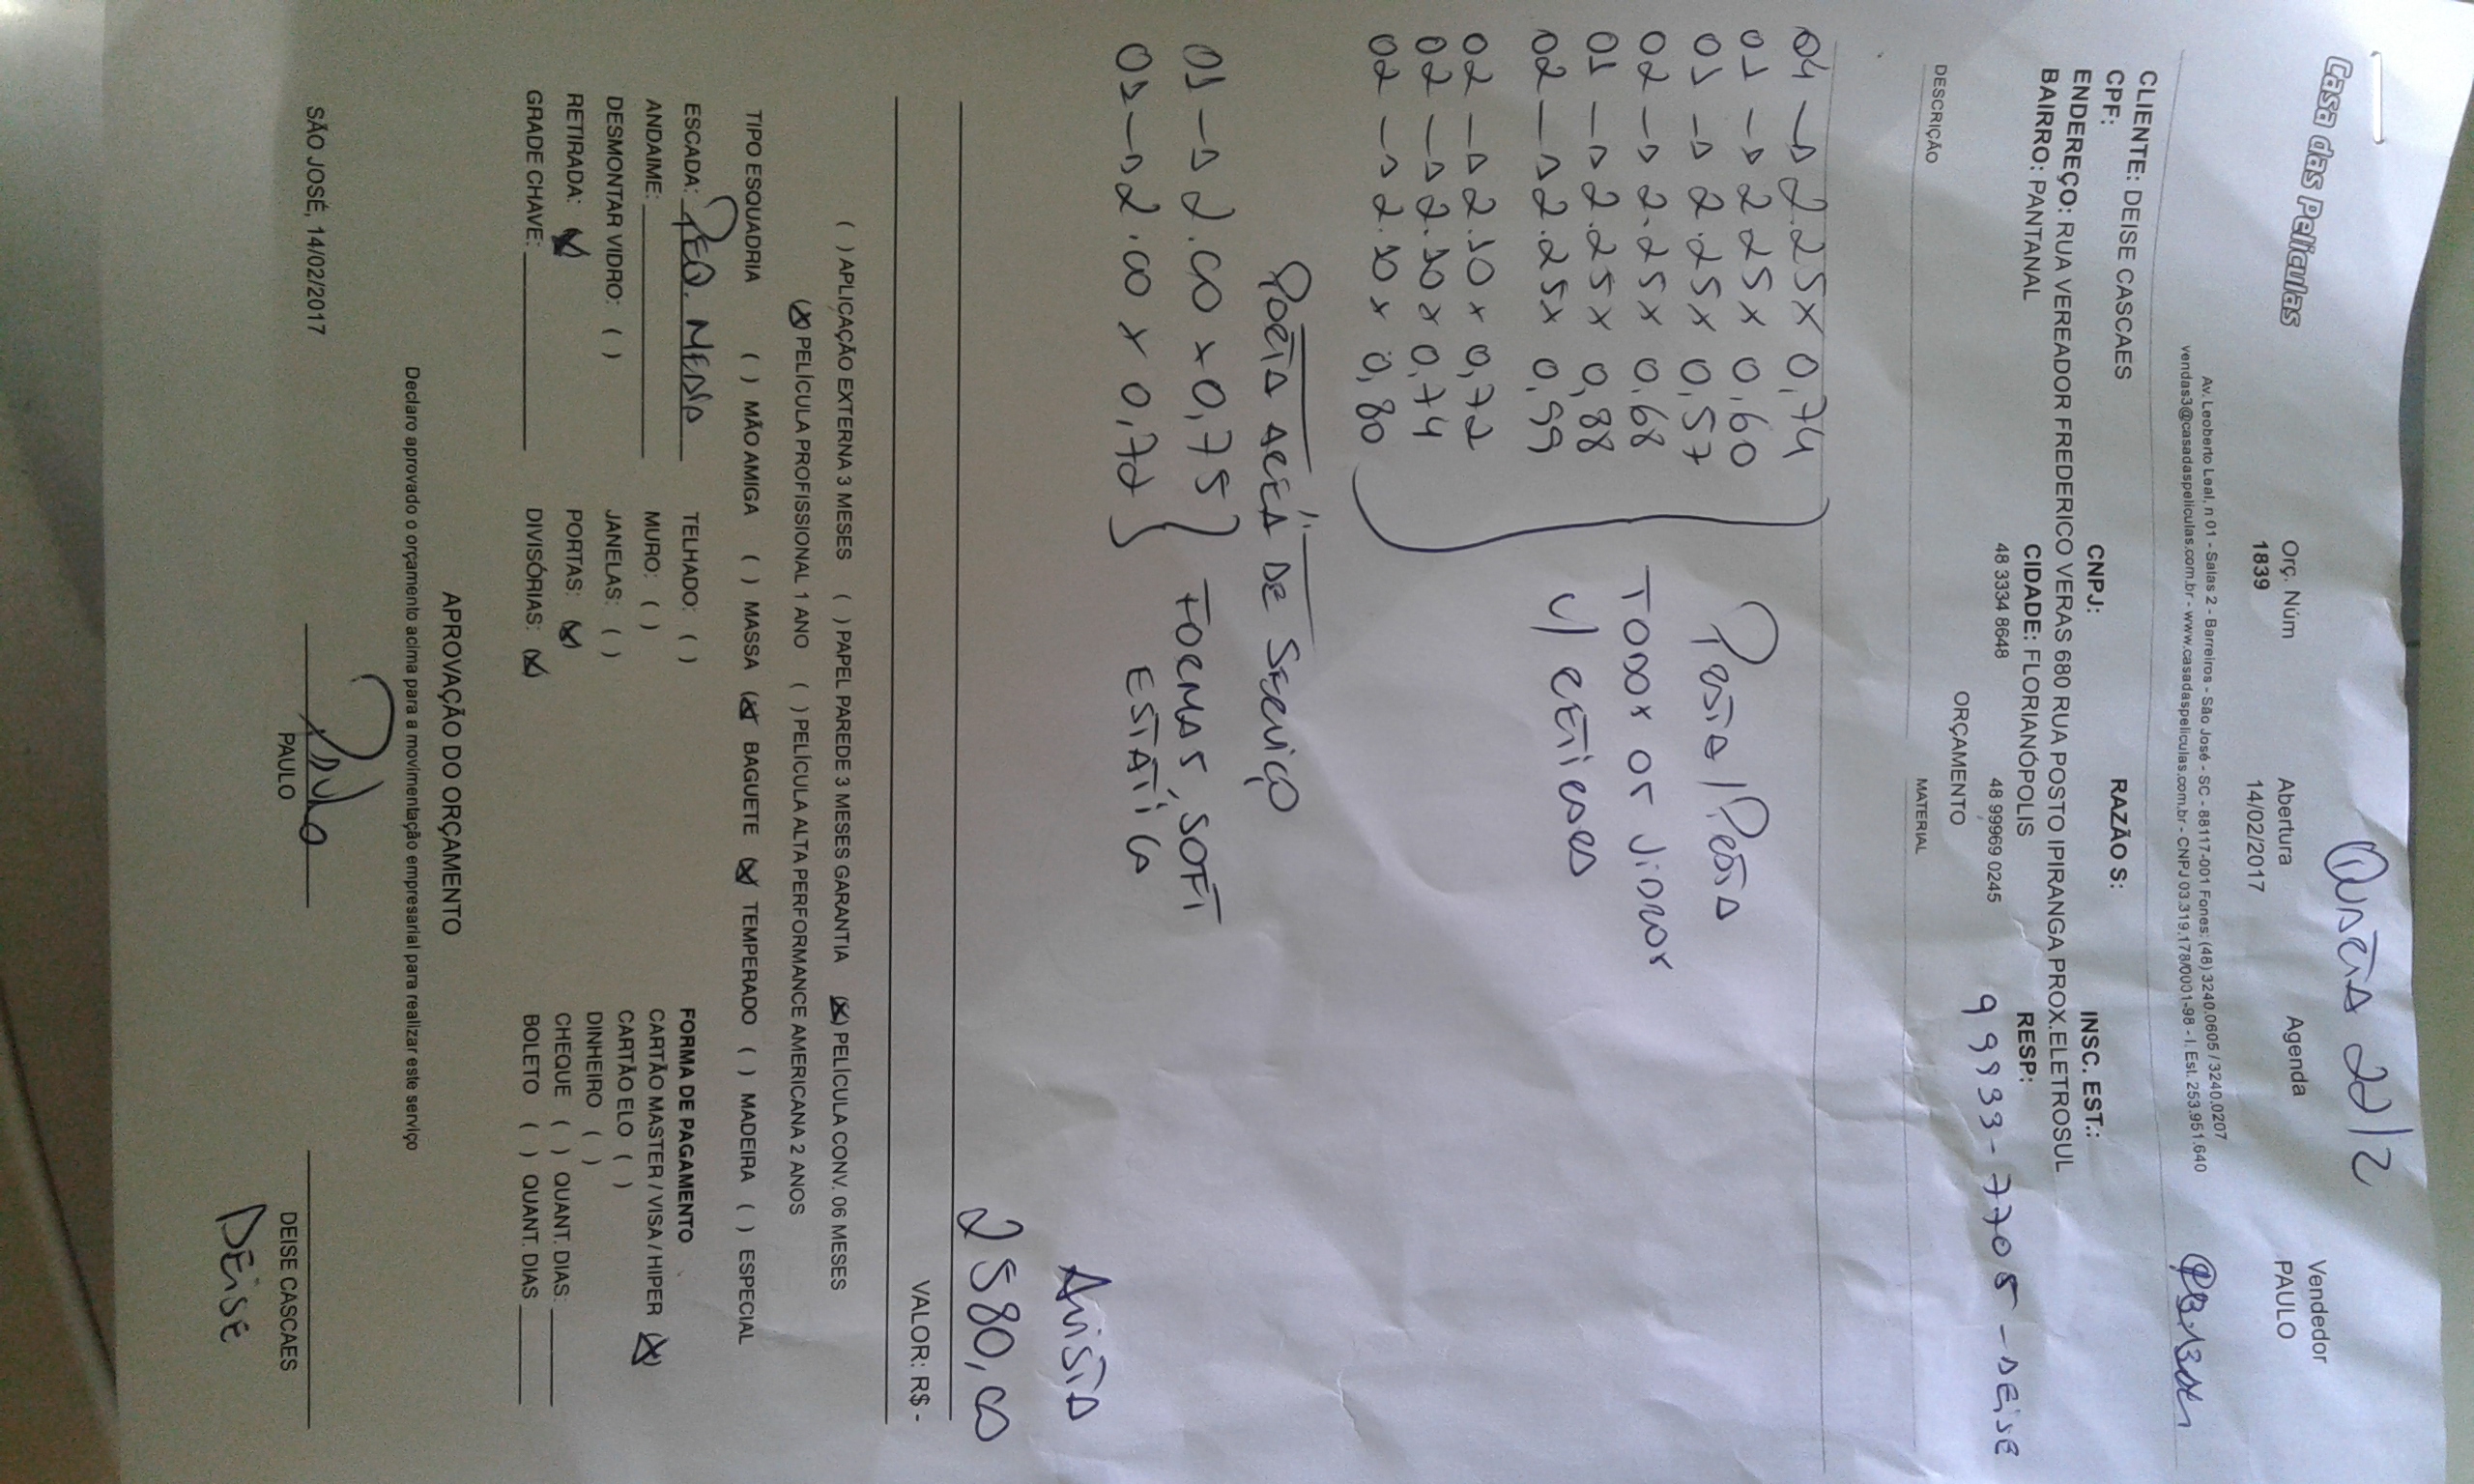 Quarta 22/2
Casa das Peliculas
Orç. Núm Abertura Agenda Vendedor
1839 14/02/2017 PAULO
Av. Leoberto Leal, n 01 - Salas 2 - Barreiros - São José - SC - 88117-001 Fones: (48) 3240.0605 / 3240.0207
vendas3@casadaspeliculas.com.br - www.casadaspeliculas.com.br - CNPJ 03.319.178/0001-98 - I. Est. 253.951.640
CLIENTE: DEISE CASCAES RAZÃO S:
CPF: CNPJ: INSC. EST.:
ENDEREÇO: RUA VEREADOR FREDERICO VERAS 680 RUA POSTO IPIRANGA PROX.ELETROSUL
BAIRRO: PANTANAL CIDADE: FLORIANÓPOLIS RESP:
48 3334 8648 48 99969 0245 99933-7705 - DEISE
ORÇAMENTO
DESCRIÇÃO MATERIAL
04 → 2.25 x 0,74
01 → 2.25 x 0,60
01 → 2.25 x 0,57 Preta / Preta
02 → 2.25 x 0,68 TODOS OS VIDROS
01 → 2.25 x 0,88
02 → 2.25 x 0,99
02 → 2.10 x 0,72
02 → 2.10 x 0,74
02 → 2.10 x 0,80
PORTA AREA DE SERVIÇO
01 → 2.00 x 0,75 } FORMAS, SOFT
01 → 2.00 x 0,72 } ESTÁTICA
AVISTA
2580,00
VALOR: R$ -
( ) APLICAÇÃO EXTERNA 3 MESES ( ) PAPEL PAREDE 3 MESES GARANTIA (X) PELÍCULA CONV. 06 MESES
(X) PELÍCULA PROFISSIONAL 1 ANO ( ) PELÍCULA ALTA PERFORMANCE AMERICANA 2 ANOS
TIPO ESQUADRIA ( ) MÃO AMIGA ( ) MASSA (X) BAGUETE (X) TEMPERADO ( ) MADEIRA ( ) ESPECIAL
ESCADA: PEQ. MEDIA TELHADO: ( ) FORMA DE PAGAMENTO
ANDAIME: MURO: ( ) CARTÃO MASTER / VISA / HIPER (X)
DESMONTAR VIDRO: ( ) JANELAS: ( ) CARTÃO ELO ( )
DINHEIRO ( )
RETIRADA: (X) PORTAS: (X) CHEQUE ( ) QUANT. DIAS:
GRADE CHAVE: DIVISÓRIAS: (X) BOLETO ( ) QUANT. DIAS
APROVAÇÃO DO ORÇAMENTO
Declaro aprovado o orçamento acima para a movimentação empresarial para realizar este serviço
SÃO JOSÉ, 14/02/2017 Paulo
PAULO DEISE CASCAES
DEISE